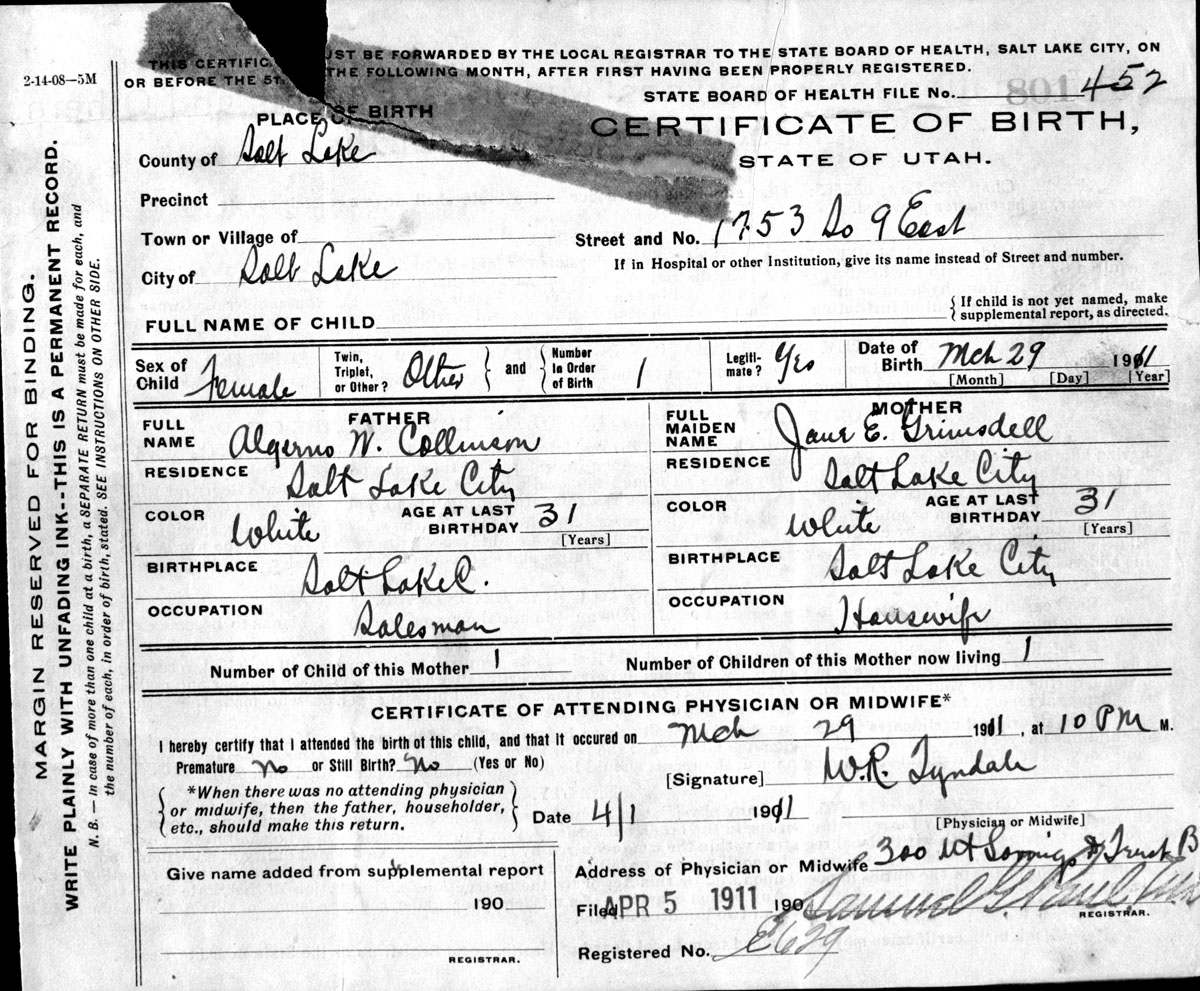 2-14-08—5M
THIS CERTIFIC UST BE FORWARDED BY THE LOCAL REGISTRAR TO THE STATE BOARD OF HEALTH, SALT LAKE CITY, ON
OR BEFORE THE 5 THE FOLLOWING MONTH, AFTER FIRST HAVING BEEN PROPERLY REGISTERED.
STATE BOARD OF HEALTH FILE No. 452
PLACE OF BIRTH
CERTIFICATE OF BIRTH,
STATE OF UTAH.
County of Salt Lake
Precinct
Town or Village of
Street and No. 1753 So 9 East
City of Salt Lake
If in Hospital or other Institution, give its name instead of Street and number.
FULL NAME OF CHILD
{ If child is not yet named, make
supplemental report, as directed.
Sex of Child Female
Twin, Triplet, or Other? Other } and { Number In Order of Birth 1
Legiti-mate? Yes
Date of Birth Mch 29 1911
[Month] [Day] [Year]
FATHER
FULL NAME Algerno W. Collinson
RESIDENCE Salt Lake City
COLOR White AGE AT LAST BIRTHDAY 31
[Years]
BIRTHPLACE Salt Lake C.
OCCUPATION Salesman
MOTHER
FULL MAIDEN NAME Jane E. Grimsdell
RESIDENCE Salt Lake City
COLOR White AGE AT LAST BIRTHDAY 31
[Years]
BIRTHPLACE Salt Lake City
OCCUPATION Housewife
Number of Child of this Mother 1 Number of Children of this Mother now living 1
CERTIFICATE OF ATTENDING PHYSICIAN OR MIDWIFE*
I hereby certify that I attended the birth of this child, and that it occured on Mch 29 1911, at 10 PM M.
Premature No or Still Birth? No (Yes or No)
[Signature] W.R. Tyndale
{ *When there was no attending physician
or midwife, then the father, householder,
etc., should make this return. }
Date 4/1 1911
[Physician or Midwife]
Give name added from supplemental report
190
REGISTRAR.
Address of Physician or Midwife 300 Ut Savings & Trust B
Filed APR 5 1911 190 Samuel G. Paul
REGISTRAR.
Registered No. E629
MARGIN RESERVED FOR BINDING.
WRITE PLAINLY WITH UNFADING INK--THIS IS A PERMANENT RECORD.
N. B.—In case of more than one child at a birth, a SEPARATE RETURN must be made for each, and
the number of each, in order of birth, stated. SEE INSTRUCTIONS ON OTHER SIDE.